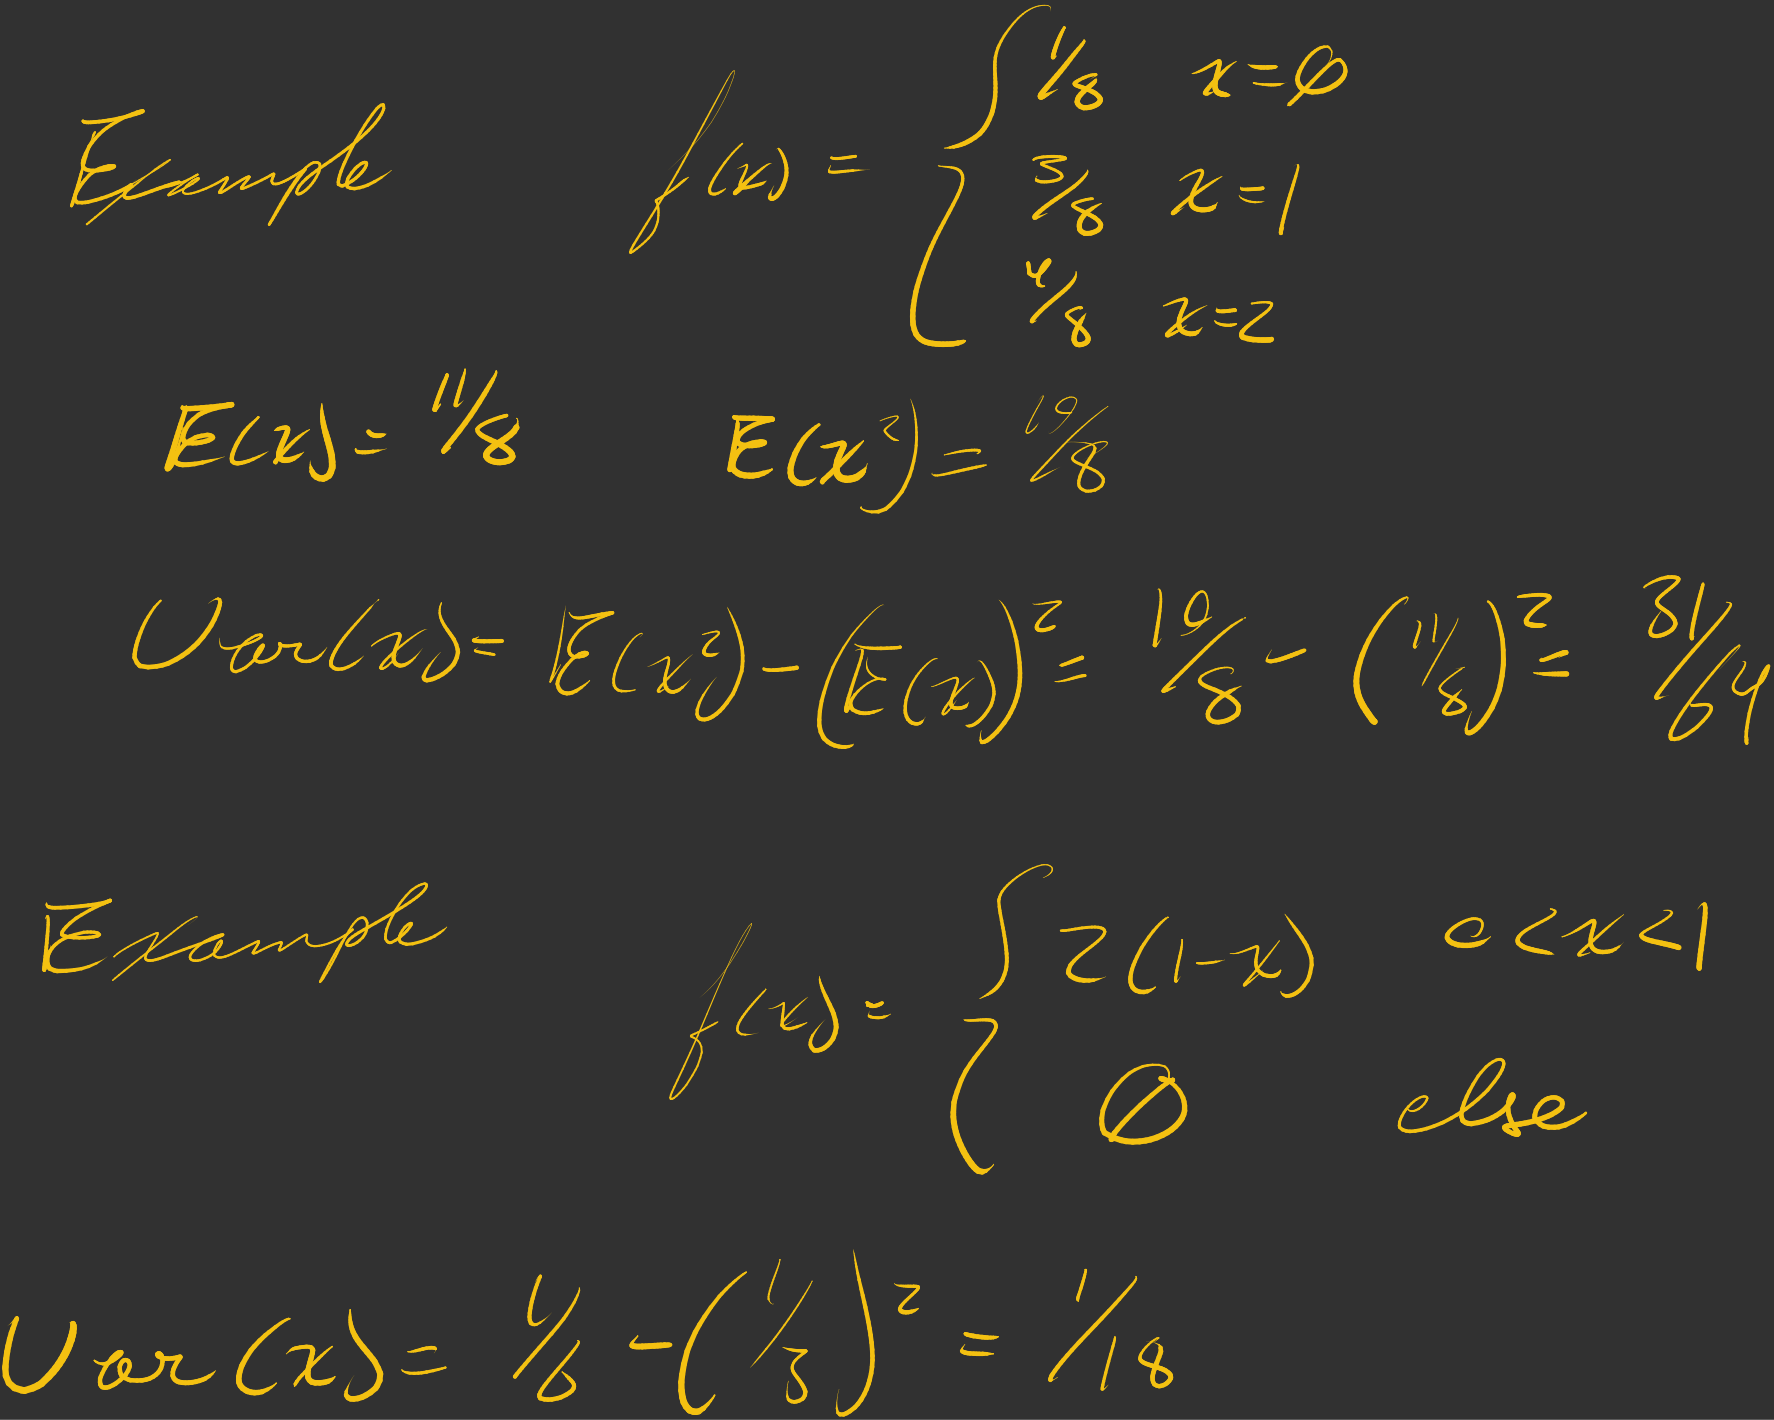 Example f(x) = { 1/8 x=0
3/8 x=1
4/8 x=2
E(x) = 11/8 E(x²) = 19/8
Var(x) = E(x²) - (E(x))² = 19/8 - (11/8)² = 31/64
Example f(x) = { 2(1-x) 0<x<1
0 else
Var(x) = 1/6 - (1/3)² = 1/18